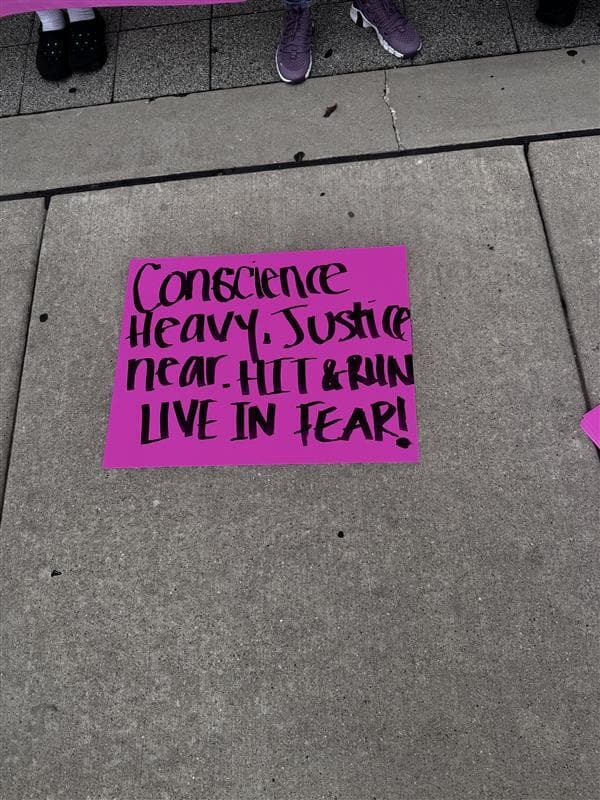 Conscience
Heavy. Justice
near. HIT & RUN
LIVE IN FEAR!